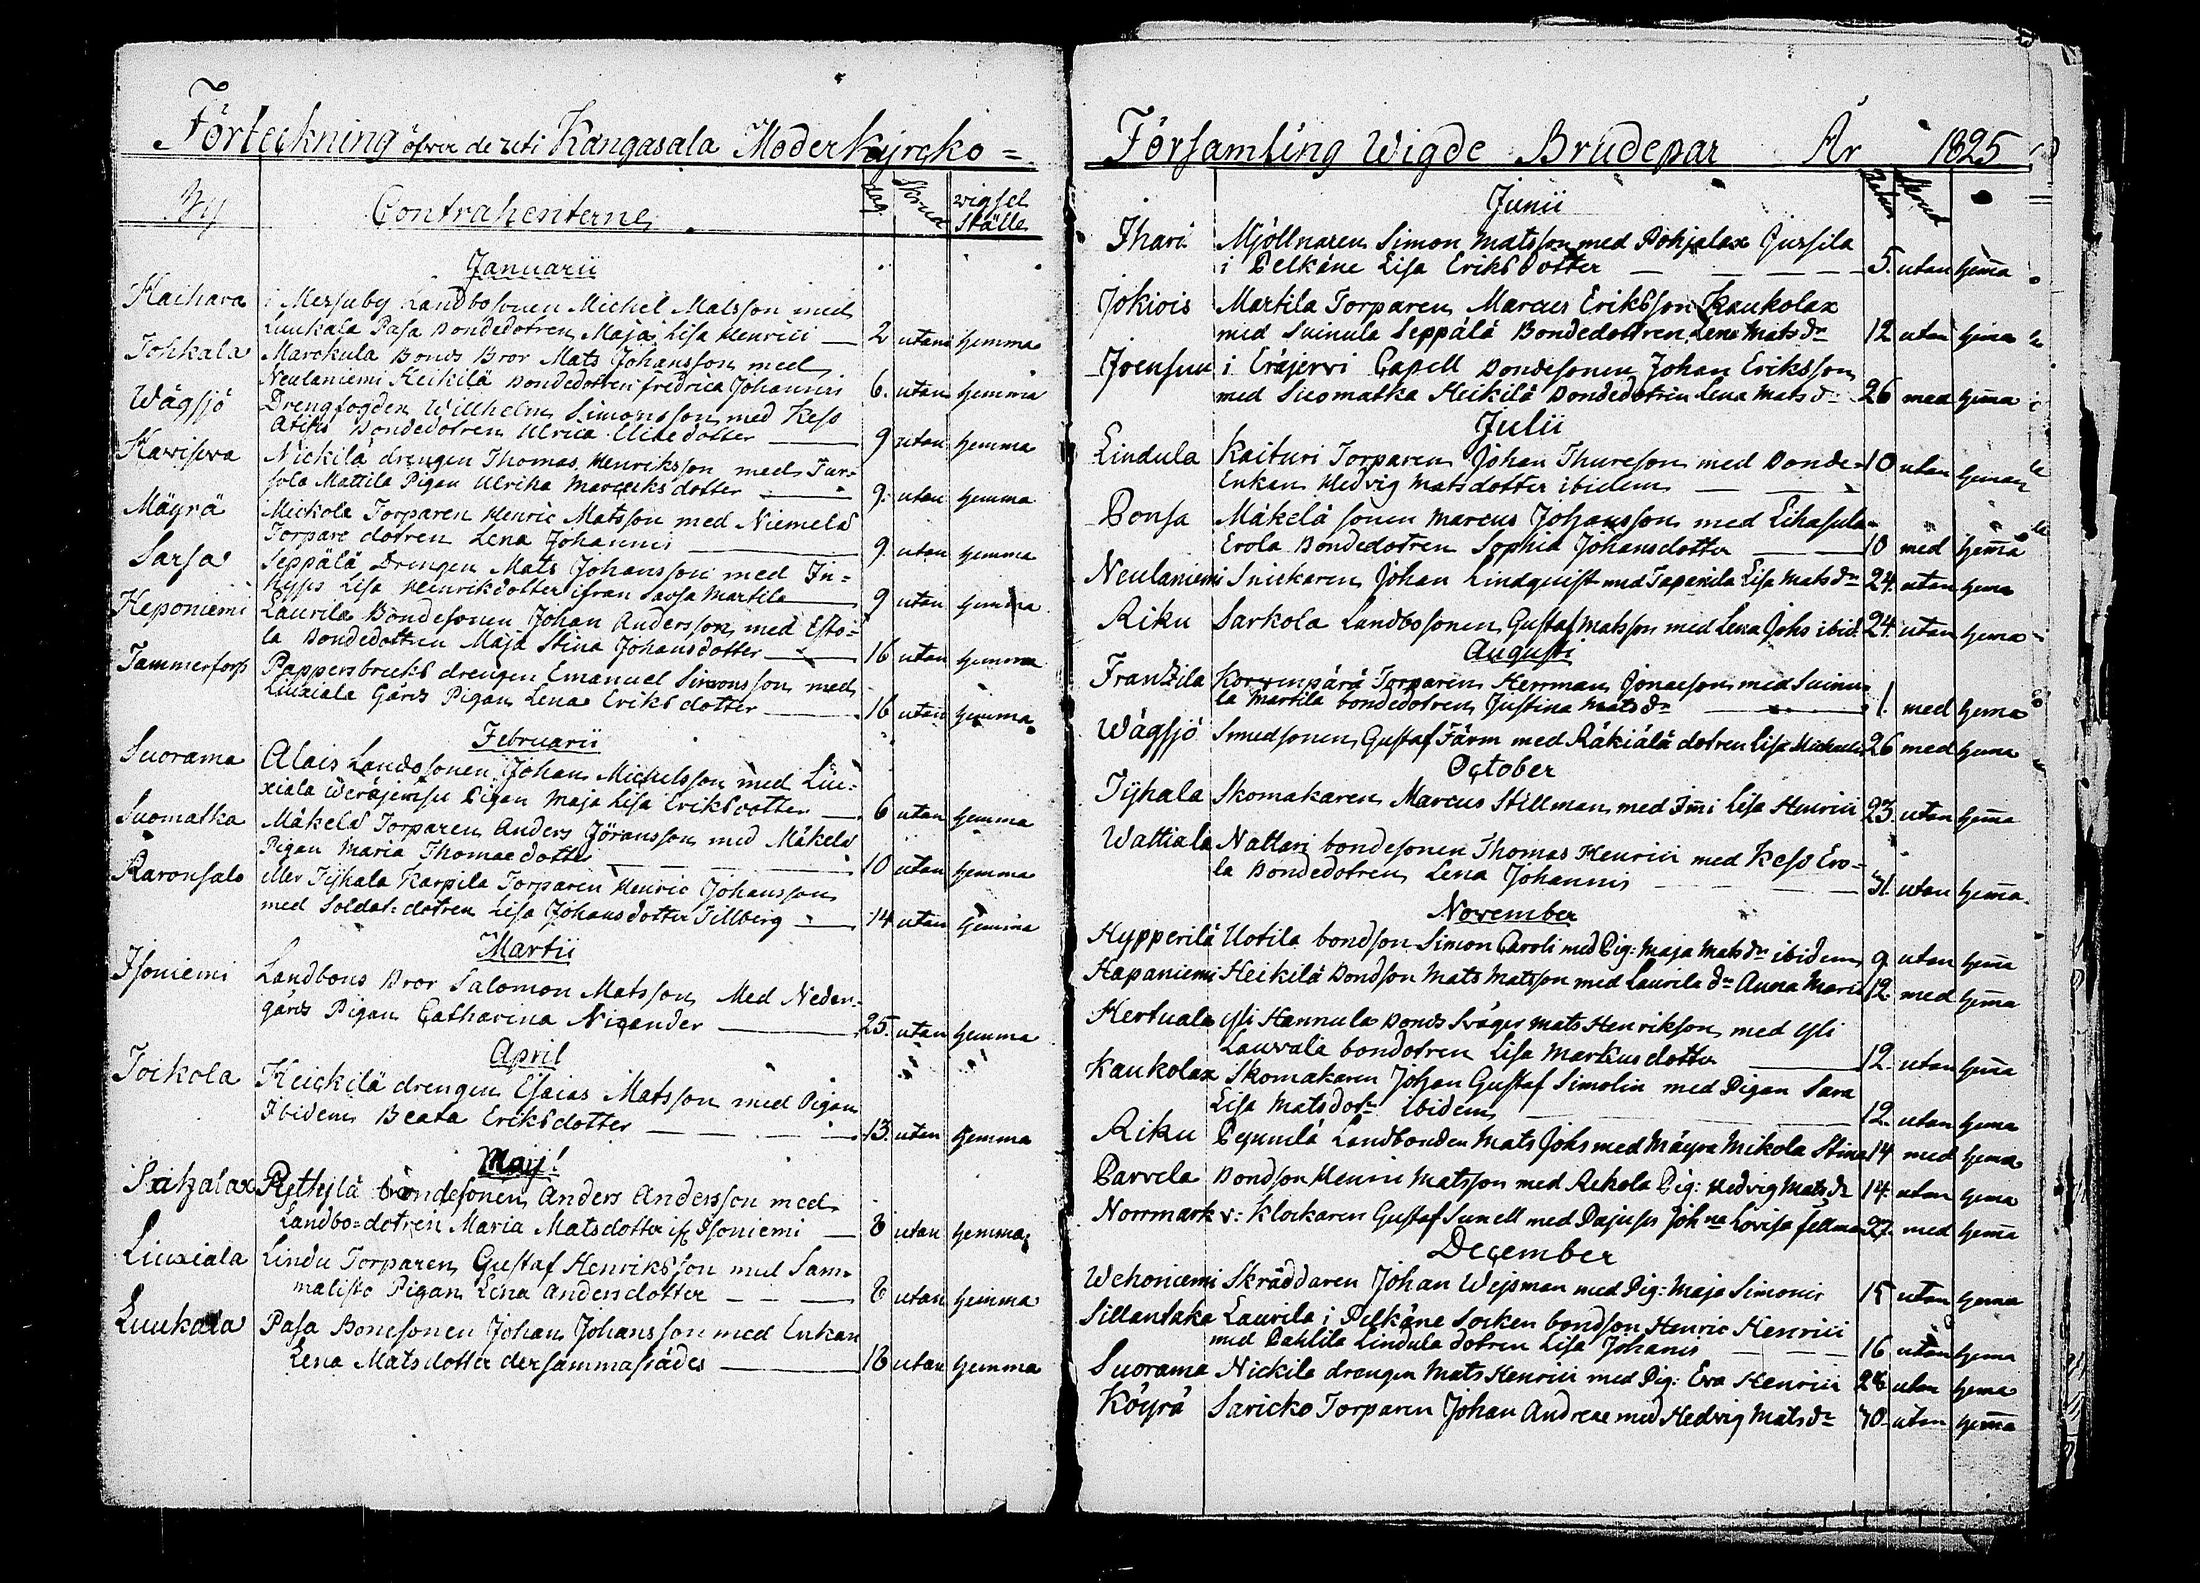 Förteckning öfver de uti Kangasala Moderkyrcko=
By Contrahenterne dag Skrud vigsel ställe
Januarii
Kaihara i Mersuby Landbosonen Michel Matsson med
Luukala Pasa Bondedotren Maja Lisa Henrici 2 utan hemma
Tohkala Marckula Bonds Bror Mats Johansson med
Neulaniemi Heikilä Bondedotren fredrica Johannis 6. utan hemma
Wägsjö Drengfogden Willhelm Simonsson med Keso
Bondedotren Ulrica dotter 9 utan hemma
Havisova Nickilä drengen Thomas Henriksson med Tur=
sola Mattila Pigan Ulrika Marcuksdotter 9. utan hemma
Mäyrä Mickola Torparen Henric Matsson med Niemelä
Torpare dotren Lena Johannis 9. utan hemma
Sarsa Seppälä Drengen Mats Johansson med In=
hyses Lisa Henrikdotter ifran Sarsa Martila 9 utan hemma
Heponiemi Laurila Bondesonen Johan Andersson med Esto=
la Bondedottren Maja Stina Johansdotter 16 utan hemma
Tammerfors Pappersbruks drengen Emanuel Simonsson med
Liuxiala Gårds Pigan Lena Eriksdotter 16 utan hemma
Februarii
Suorama Alais Landbosonen Johan Michelsson med Liu=
xiala Pigan Maja Lisa Eriksdotter 6 utan hemma
Suomatka Mäkelä Torparen Anders Jöransson med Mäkelä
Pigan Maria Thomaedotter 10 utan hemma
Raronsalo eller Tyhala Karpila Torparen Henric Johansson
med Soldat=dotren Lisa Johansdotter Tillberg 14 utan hemma
Martii
Isoniemi Landbons Bror Salomon Matsson Med Neder=
gårds Pigan Catharina Nicander 25. utan hemma
April
Toikola Heickilä drengen Esaias Matsson med Pigan
Ibidem Beata Eriksdotter 13. utan hemma
Maij
Pakalax Rythylä bondesonen Anders Andersson med
Landbo=dotren Maria Matsdotter Isoniemi 8 utan hemma
Liuxiala Lindu Torparen Gustaf Henriksson med Sam=
malisto Pigan Lena Andersdotter 8 utan hemma
Luukala Pasa Bonesonen Johan Johansson med Enkan
Lena Matsdotter dersammastädes 18 utan hemma
Församling Wigde Brudepar År 1825
Junii
Ihari Mjöllnaren Simon Matsson med Pohjalax
i Pelkäne Lisa Eriksdotter 5. utan hem̄a
Jokiois Martila Torparen Marcus Eriksson Kaukolax
med Suinula Seppälä Bondedottren Lena Matsdr 12 utan hema
Joensuu i Eräjervi Capell Bondesonen Johan Eriksson
med Suomatka Heikilä Bondedotren Lena Matsdr 26 med hem̄a
Julii
Lindula Kaituri Torparen Johan Thureson med Bonde= 10 utan heman
Enkan Hedvig Matsdotter ibidem
Ponsa Mäkelä sonen Marcus Johansson med Lihasula
Erola Bondedotren Sophia Johansdotter 10 med hem̄a
Neulaniemi Snickaren Johan Lindquist med Tapanila Lisa Matsdr 24. utan hema
Riku Sarkola Landbosonen Gustaf Matsson med Lena Johs ibid. 24. utan hema
Augusti
Frantzila Korvenpärä Torparen Herrman Jonaeson med Suinu=
la Martila bondedotren Justina Matsdr 1. med hema
Wägsjö Smedsonen Gustaf Färm med Räkiälä dotren Lisa Michaelis 26 med hema
October
Tyhala Skomakaren Marcus Stillman med Im̄i Lisa Henrici 23. utan hem̄a
Wattiala Nattari bondesonen Thomas Henrici med Keso Ero=
la Bondedotren Lena Johannis 31. utan hem̄a
November
Hypperilä Uotila bondson Simon Caroli med Pig: Maja Matsdr ibidem 9 utan hem̄a
Hapaniemi Heikilä Bondson Mats Matsson med Laurila dr Anna Maria 12 med hem̄a
Hertuala yli Hannula Bonds Svåger Mats Henrikson med yli
Lauvala bondotren Lisa Markusdotter 12. utan hem̄a
Kaukolax Skomakaren Johan Gustaf Simolin med Pigan Sara
Lisa Matsdotr ibidem 12. utan hema
Riku Landbonden Mats Johs med Mäyrä Mikola Stina 14 med hema
Parvela Bondson Henric Matsson med Aekola Pig: Hedvig Matsdr 14. utan hema
Norrmark v: Klockaren Gustaf Sunell med Johna Lovisa fellman 27. med hem̄a
December
Wehoniemi Skräddaren Johan Wejsman med Pig: Maja Simonis 15 utan hema
Sillantaka Laurila i Pelkäne Socken bondson Henric Henrici
med Pahlila Lindula dotren Lisa Johanis 16 utan hema
Suorama Nickila drengen Mats Henrici med Pig: Eva Henrici 28 utan hema
Köyrä Saricko Torparen Johan Andreae med Hedvig Matsdr 30. utan hem̄a